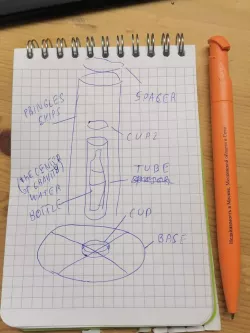 SPACER
PRINGLES
CHIPS
CUP2
THE CENTER
OF GRAVITY
WATER
BOTTLE
TUBE
CUP
BASE